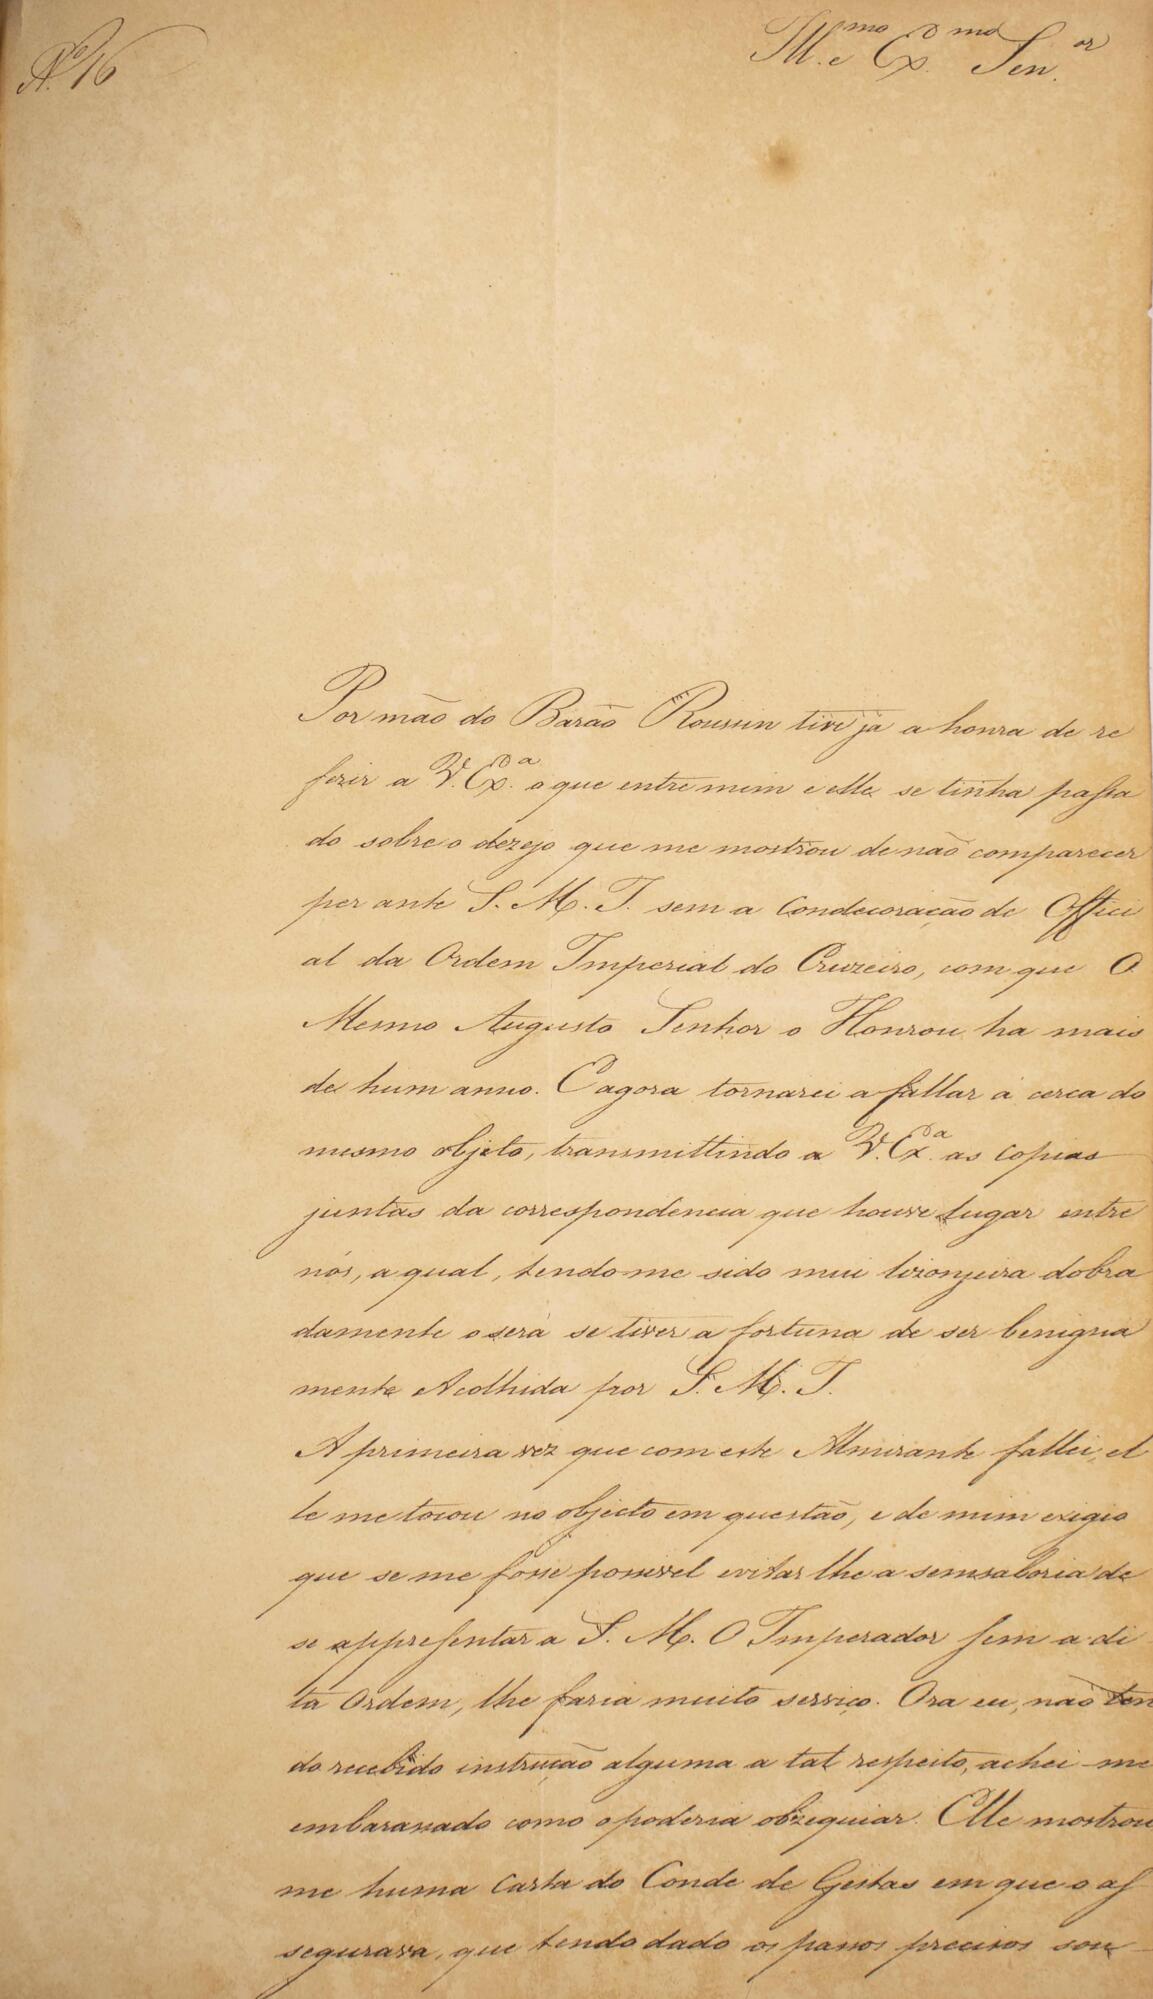 N.o 16
Ill.mo e Ex.mo Sen.or
Por mão do Barão Roussin tive já a honra de re
ferir a V. Ex.a o que entre mim e elle se tinha passa
do sobre o dezejo que me mostrou de não comparecer
per ante S. M. I. sem a Condecoração de Offici
al da Ordem Imperial do Cruzeiro, com que O
Mesmo Augusto Senhor o Honrou ha mais
de hum anno. E agora tornarei a fallar á cerca do
mesmo objeto, transmittindo a V. Ex.a as copias
juntas da correspondencia que houve lugar entre
nós, a qual, tendo me sido mui lizonjeira dobra
damente o será se tiver a fortuna de ser benigna
mente Acolhida por S. M. I.
A primeira vez que com este Almirante fallei, el
le me tocou no objecto em questão, e de mim exigio
que se me fosse possivel evitar lhe a semsaboria de
se appresentar a S. M. O Imperador sem a di
ta Ordem, lhe faria muito serviço. Ora eu, não ten
do recebido instrução alguma a tal respeito, achei me
embarassado como o poderia obzequiar. Elle mostrou
me huma Carta do Conde de Gestas em que o as
segurava, que tendo dado os passos precisos sou